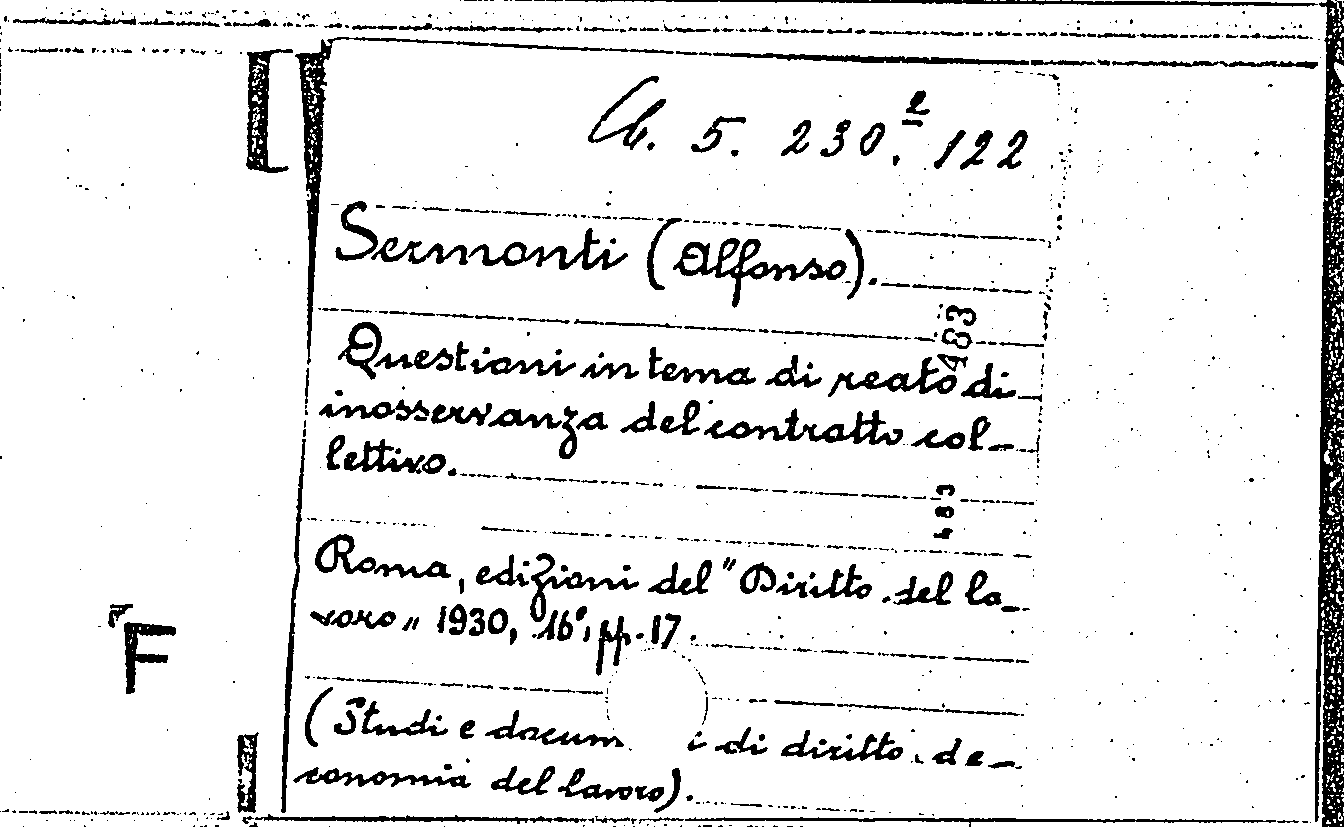 5. 230.² 122
Sermonti (Alfonso).
483
Questioni in tema di reato di
inosservanza del contratto col-
lettivo.
483
Roma, edizioni del "Diritto del la-
voro" 1930, 16°, pp. 17.
F
(Studi e docum i di diritto d e-
conomia del lavoro).